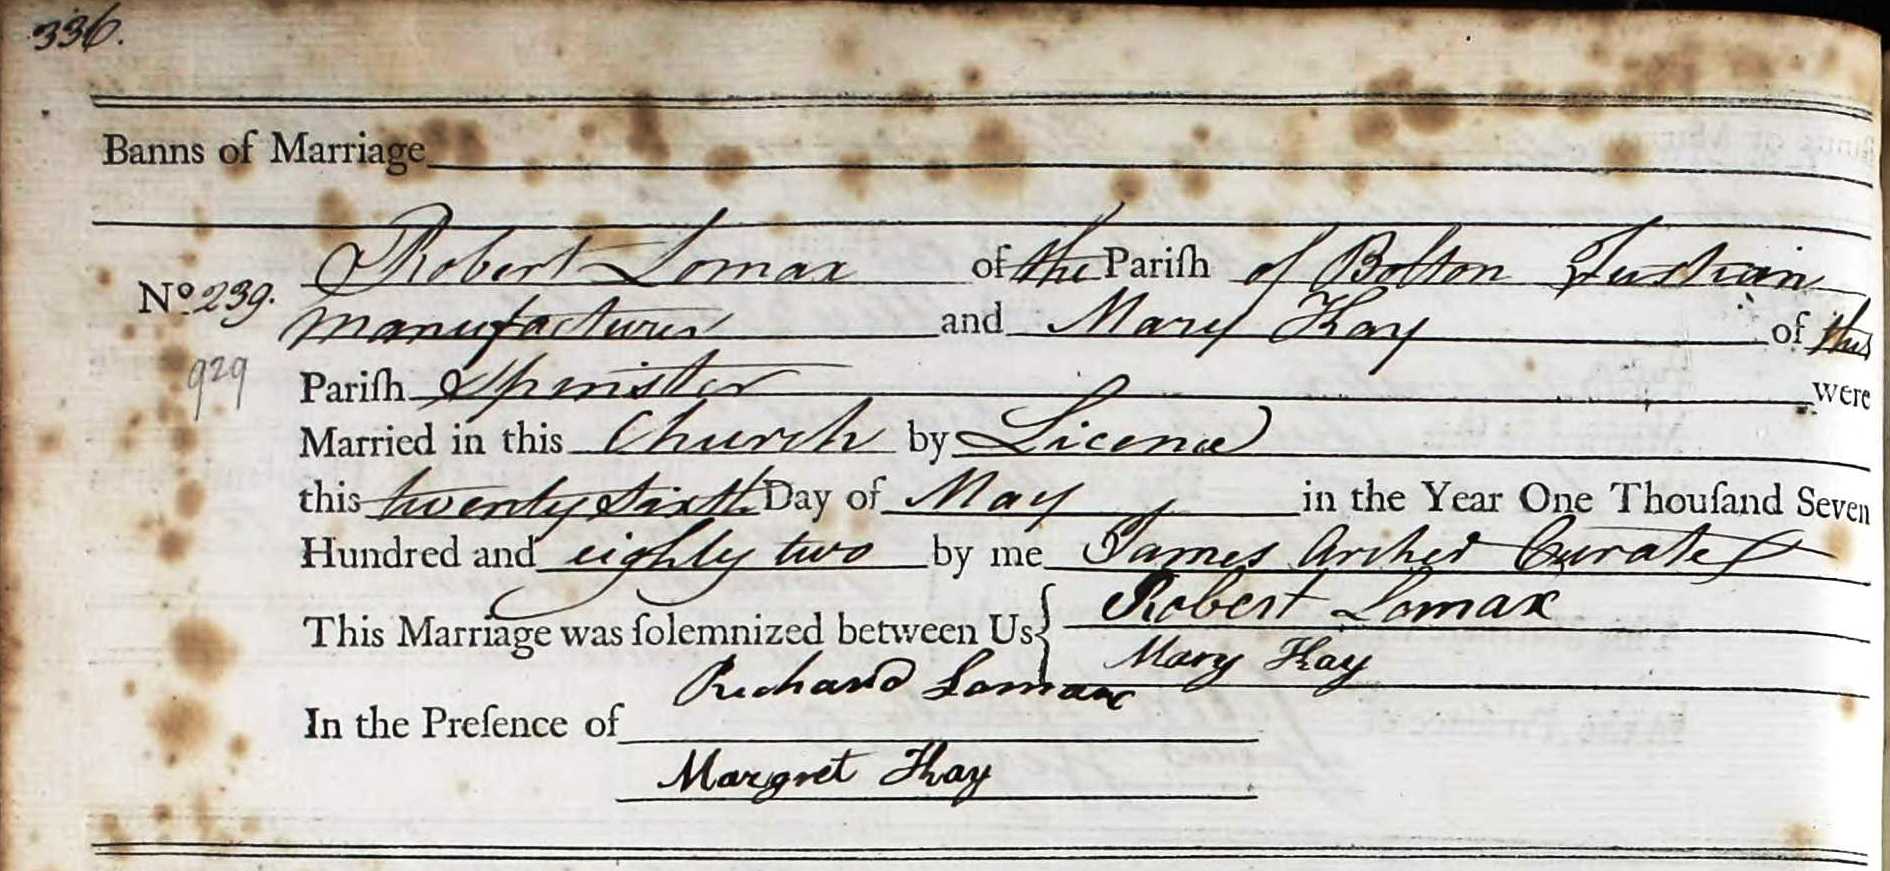 336.
Banns of Marriage
Robert Lomax of the Pariſh of Bolton Fustian
No. 239. manufacturer and Mary Kay of this
929
Pariſh Spinster were
Married in this Church by Licence
this twenty sixth Day of May in the Year One Thouſand Seven
Hundred and eighty two by me James Archer Curate
This Marriage was ſolemnized between Us { Robert Lomax
Mary Kay
In the Preſence of Richard Lomax
Margret Kay